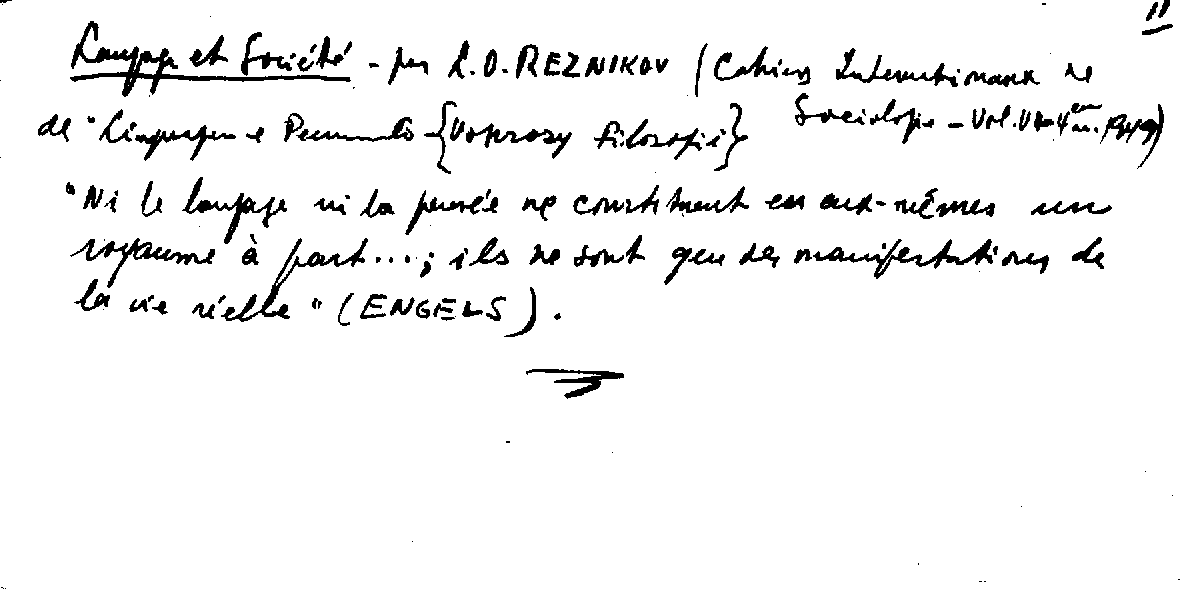 11
Langage et Société - par L.O. REZNIKOV (Cahiers Internationaux de
de "Linguagem e Pensamento {Voprosy filosofii} Sociologie - Vol. VI - 4 1949)
"Ni le langage ni la pensée ne constituent en eux-mêmes un
royaume à part...; ils ne sont que des manifestations de
la vie réelle" (ENGELS).